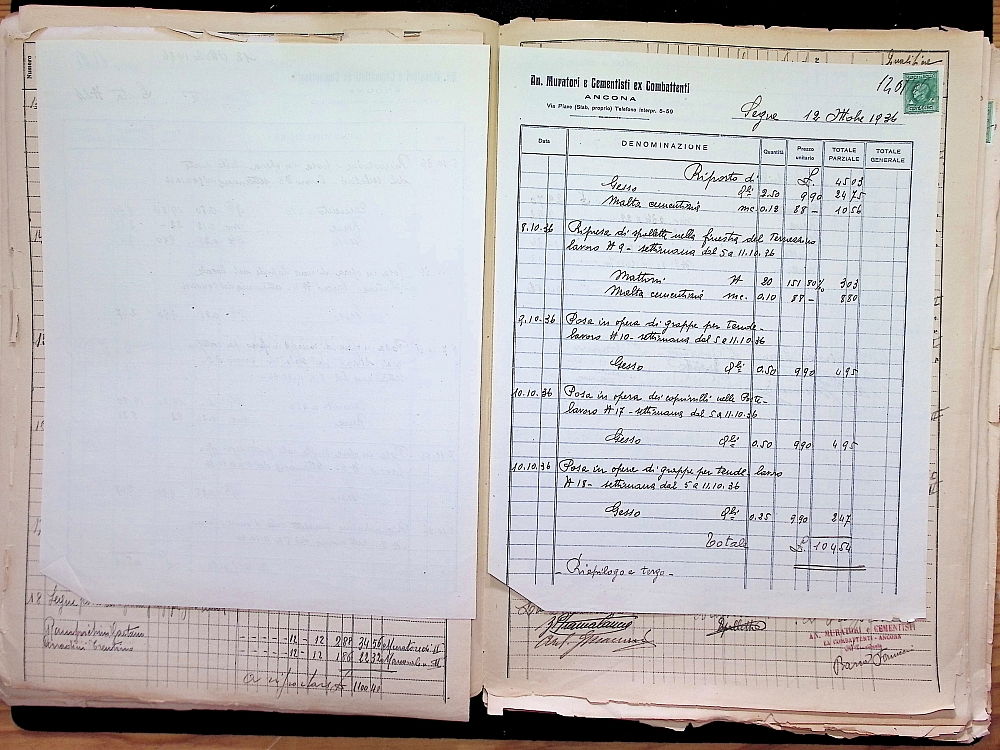 Numero
18 Segue
12 - 12 2,88 34 56 Muratore di II
12 - 12 1 86 22 32 Manovale
a riportare £ 1100,41
Qualifiche
1201
An. Muratori e Cementisti ex Combattenti
ANCONA
Via Piave (Stab. proprio) Telefono interpr. 5-59
Segue 12 Ottobre 1936
Data DENOMINAZIONE Quantità Prezzo unitario TOTALE PARZIALE TOTALE GENERALE
Riporto di £. 45 03
Gesso Qli 2.50 9 90 24 75
Malta cementizia mc. 0.12 88 - 10 56
8.10.36 Ripresa di spallette nella finestra del Terrazzino
lavoro N 9 - settimana dal 5 a 11.10.36
Mattoni N 20 151 80% 3 03
Malta cementizia mc. 0.10 88 - 8 80
9.10.36 Posa in opera di grappe per tende -
lavoro N 10 - settimana dal 5 a 11.10.36
Gesso Qli 0.50 9 90 4 95
10.10.36 Posa in opera dei coprirulli nelle Porte -
lavoro N 17 - settimana dal 5 a 11.10.36
Gesso Qli 0.50 9 90 4 95
10.10.36 Posa in opera di grappe per tende - lavoro
N 18 - settimana dal 5 a 11.10.36
Gesso Qli 0.25 9 90 2 47
Totale £. 104 54
- Riepilogo a tergo -
AN. MURATORI e CEMENTISTI
EX COMBATTENTI - ANCONA